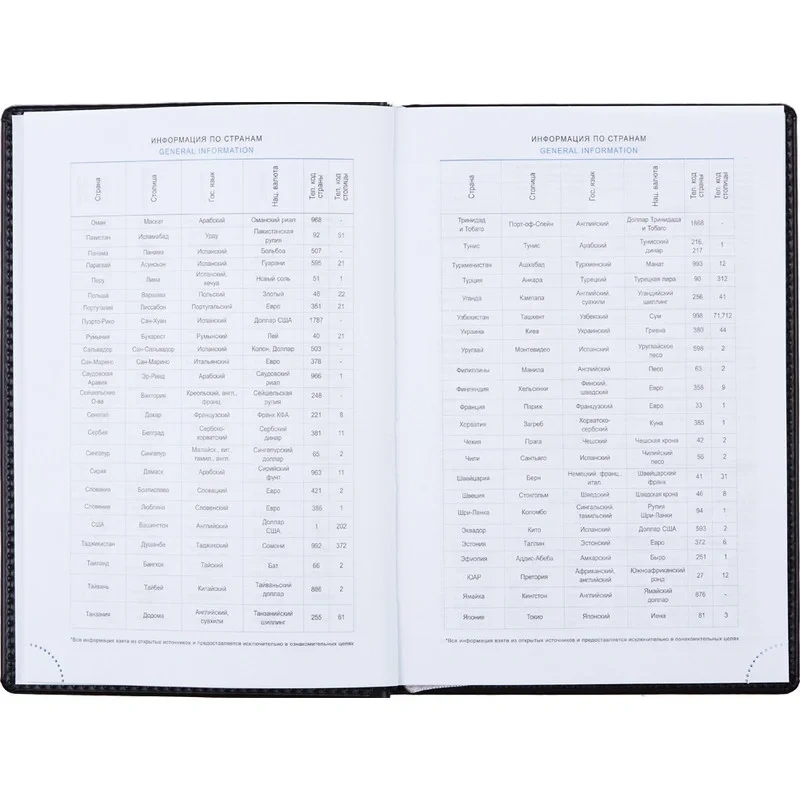 ИНФОРМАЦИЯ ПО СТРАНАМ
GENERAL INFORMATION
Страна Столица Гос. язык Нац. валюта Тел. код страны Тел. код столицы
Оман Маскат Арабский Оманский риал 968 -
Пакистан Исламабад Урду Пакистанская рупия 92 51
Панама Панама Испанский Бальбоа 507 -
Парагвай Асунсьон Испанский Гуарани 595 21
Перу Лима Испанский, кечуа Новый соль 51 1
Польша Варшава Польский Злотый 48 22
Португалия Лиссабон Португальский Евро 351 21
Пуэрто-Рико Сан-Хуан Испанский Доллар США 1787 -
Румыния Бухарест Румынский Лей 40 21
Сальвадор Сан-Сальвадор Испанский Колон, Доллар 503 -
Сан-Марино Сан-Марино Итальянский Евро 378 -
Саудовская Аравия Эр-Рияд Арабский Саудовский риал 966 1
Сейшельские О-ва Виктория Креольский, англ., франц. Сейшельская рупия 248 -
Сенегал Дакар Французский Франк КФА 221 8
Сербия Белград Сербско-хорватский Сербский динар 381 11
Сингапур Сингапур Малайск., кит. тамил., англ. Сингапурский доллар 65 2
Сирия Дамаск Арабский Сирийский фунт 963 11
Словакия Братислава Словацкий Евро 421 2
Словения Любляна Словенский Евро 386 1
США Вашингтон Английский Доллар США 1 202
Таджикистан Душанбе Таджикский Сомони 992 372
Таиланд Бангкок Тайский Бат 66 2
Тайвань Тайбей Китайский Тайваньский доллар 886 2
Танзания Додома Английский, суахили Танзанийский шиллинг 255 61
*Вся информация взята из открытых источников и предоставляется исключительно в ознакомительных целях
ИНФОРМАЦИЯ ПО СТРАНАМ
GENERAL INFORMATION
Страна Столица Гос. язык Нац. валюта Тел. код страны Тел. код столицы
Тринидад и Тобаго Порт-оф-Спейн Английский Доллар Тринидада и Тобаго 1868 -
Тунис Тунис Арабский Тунисский динар 216, 217 1
Туркменистан Ашхабад Туркменский Манат 993 12
Турция Анкара Турецкий Турецкая лира 90 312
Уганда Кампала Английский, суахили Угандийский шиллинг 256 41
Узбекистан Ташкент Узбекский Сум 998 71,712
Украина Киев Украинский Гривна 380 44
Уругвай Монтевидео Испанский Уругвайский песо 598 2
Филиппины Манила Английский Песо 63 2
Финляндия Хельсинки Финский, шведский Евро 358 9
Франция Париж Французский Евро 33 1
Хорватия Загреб Хорватско-сербский Куна 385 1
Чехия Прага Чешский Чешская крона 42 2
Чили Сантьяго Испанский Чилийский песо 56 2
Швейцария Берн Немецкий, франц., итал. Швейцарский франк 41 31
Швеция Стокгольм Шведский Шведская крона 46 8
Шри-Ланка Коломбо Сингальский, тамильский Рупия Шри-Ланки 94 1
Эквадор Кито Испанский Доллар США 593 2
Эстония Таллин Эстонский Евро 372 6
Эфиопия Аддис-Абеба Амхарский Быр 251 1
ЮАР Претория Африканский, английский Южноафриканский рэнд 27 12
Ямайка Кингстон Английский Ямайский доллар 876 -
Япония Токио Японский Иена 81 3
*Вся информация взята из открытых источников и предоставляется исключительно в ознакомительных целях